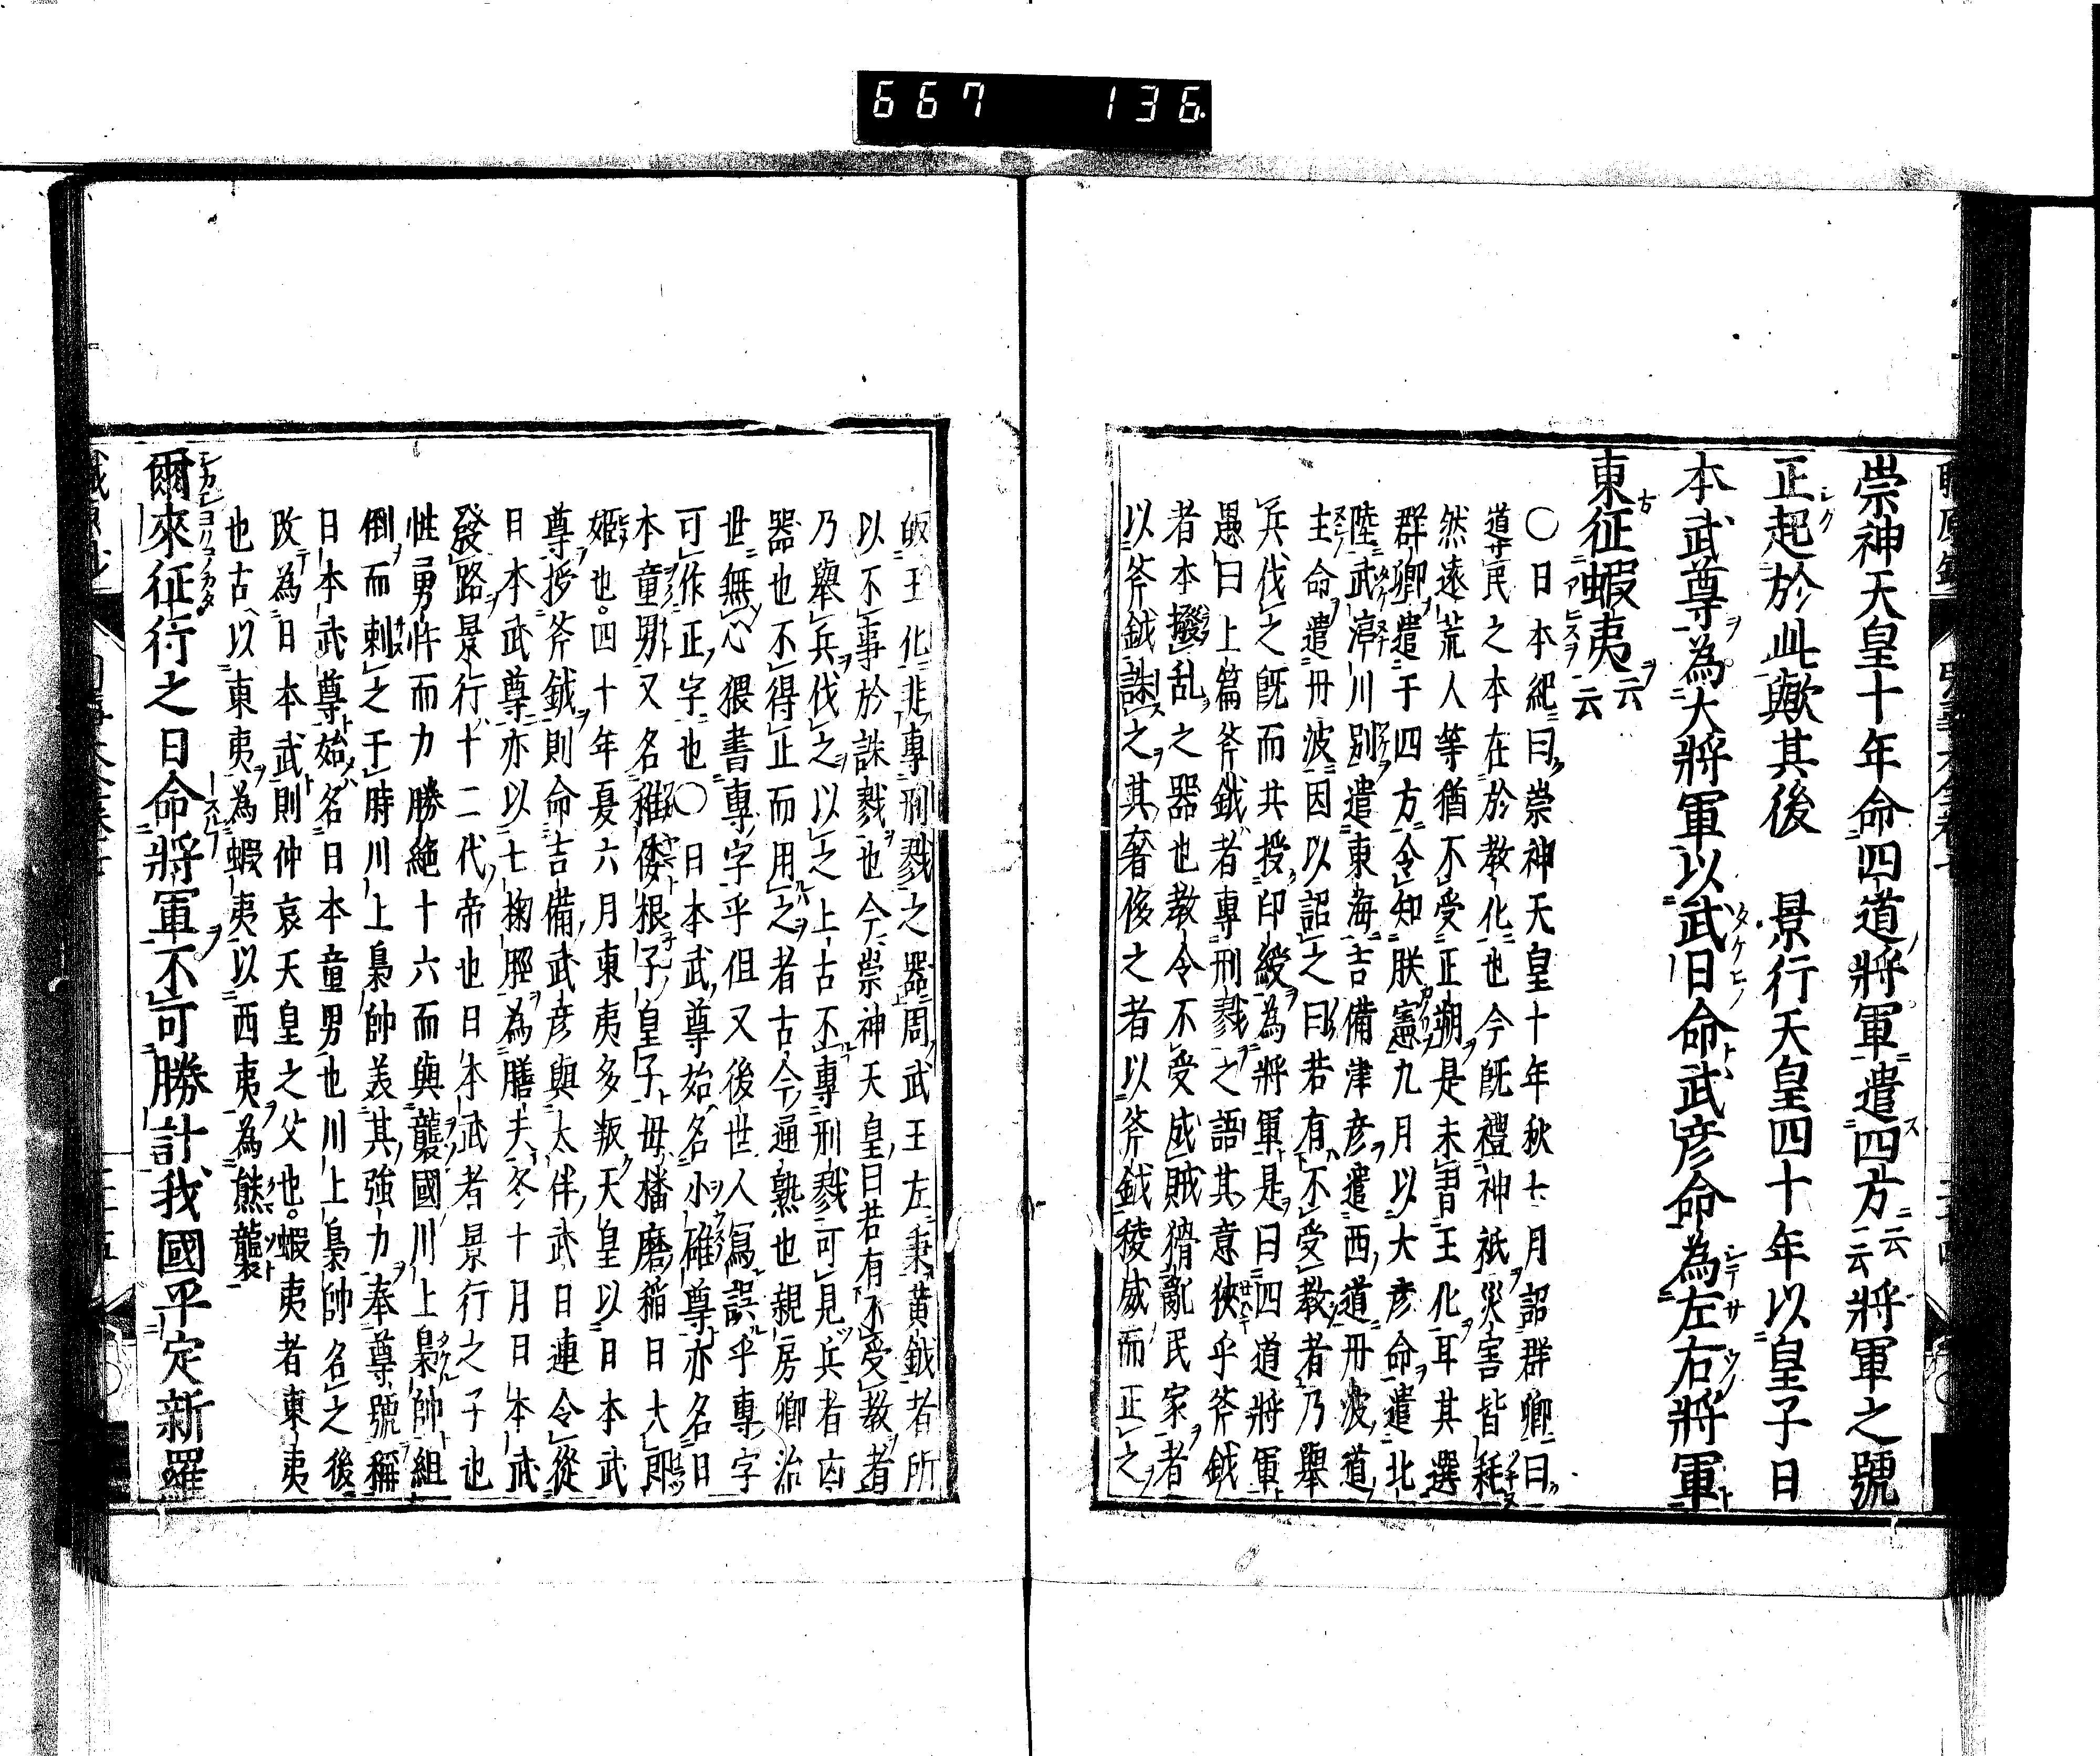 667 136
崇神天皇十年命四道將軍遣四方云云將軍之號
正起於此歟其後 景行天皇四十年以皇子日
本武尊為大將軍以武日命武彦命為左右將軍
東征蝦夷云云
〇日本紀曰崇神天皇十年秋七月詔群卿曰
道民之本在於教化也今既禮神祇災害皆耗
然遠荒人等猶不受正朔是未習王化耳其選
群卿遣于四方令知朕憲九月以大彦命遣北
陸武渟川別遣東海吉備津彦遣西道丹波道
主命遣丹波因以詔之曰若有不受教者乃舉
兵伐之既而共授印綬為將軍是曰四道將軍
愚曰上篇斧鉞者專刑戮之語其意狹乎斧鉞
者本撥乱之器也教令不受威賊猾亂民家者
以斧鉞誅之其奢侈之者以斧鉞稜威而正之
皈王化非專刑戮之器周武王左秉黄鉞者所
以不事於誅戮也今崇神天皇曰若有不受教者
乃舉兵伐之以之上古不專刑戮可見兵者凶
器也不得止而用之者古今通熟也親房卿治
世無心猥書專字乎但又後世人寫誤乎專字
可作正字也〇日本武尊始名小碓尊亦名日
本童男又名稚倭根子皇子母播磨稲日大郎
姫也四十年夏六月東夷多叛天皇以日本武
尊授斧鉞則命吉備武彦與大伴武日連令從
日本武尊亦以七掬脛為膳夫冬十月日本武
發路景行十二代帝也日本武者景行之子也
性勇悍而力勝絶十六而與襲國川上梟帥組
倒而刺之于時川上梟帥美其強力奉尊號稱
日本武尊始名日本童男也川上梟帥名之後
改為日本武則仲哀天皇之父也蝦夷者東夷
也古以東夷為蝦夷以西夷為熊襲
爾來征行之日命將軍不可勝計我國平定新羅